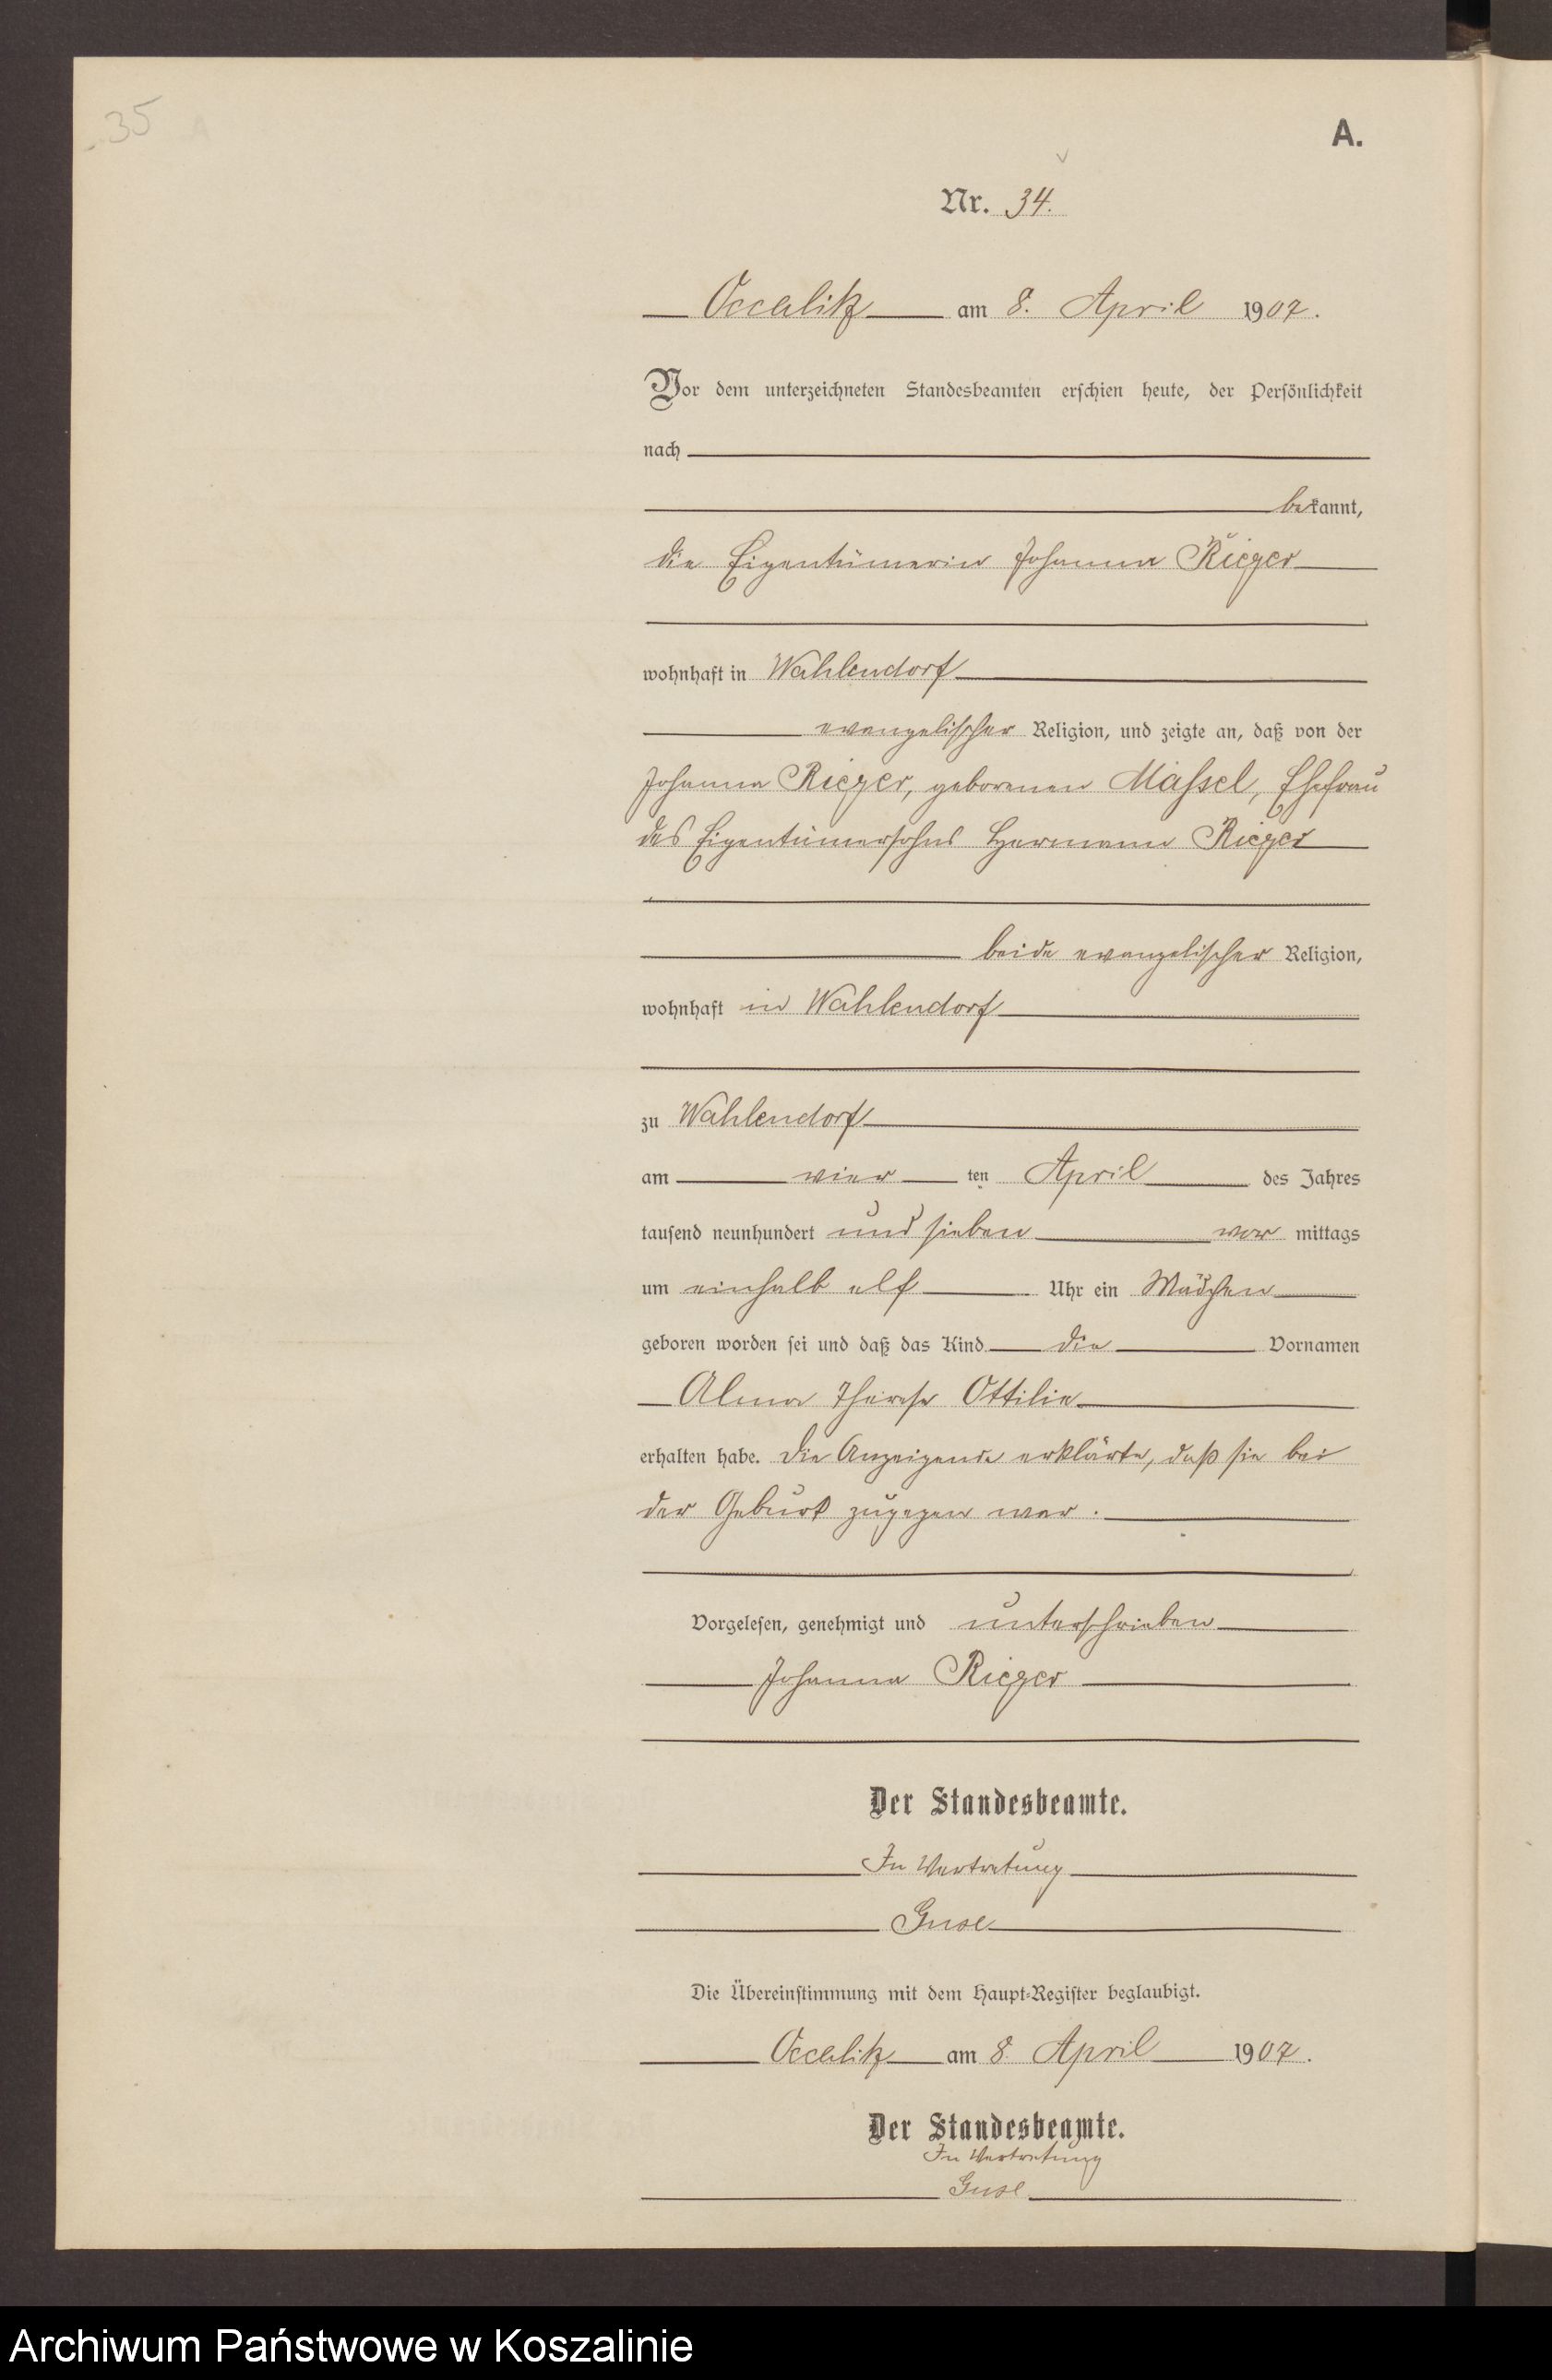 35
A.
Nr. 34.
Occalitz am 8. April 1907.
Vor dem unterzeichneten Standesbeamten erschien heute, der Persönlichkeit
nach
bekannt,
die Eigentümerin Johanna Rieger
wohnhaft in Wahlendorf
evangelischer Religion, und zeigte an, daß von der
Johanna Rieger, geborenen Massel, Ehefrau
des Eigentümersohns Hermann Rieger
beide evangelischer Religion,
wohnhaft in Wahlendorf
zu Wahlendorf
am vier ten April des Jahres
tausend neunhundert und sieben vor mittags
um einhalb elf Uhr ein Mädchen
geboren worden sei und daß das Kind die Vornamen
Alma Therese Ottilie
erhalten habe. Die Anzeigende erklärte, daß sie bei
der Geburt zugegen war.
Vorgelesen, genehmigt und unterschrieben
Johanna Rieger
Der Standesbeamte.
In Vertretung
Guse
Die Übereinstimmung mit dem Haupt-Register beglaubigt.
Occalitz am 8. April 1907.
Der Standesbeamte.
In Vertretung
Guse
Archiwum Państwowe w Koszalinie